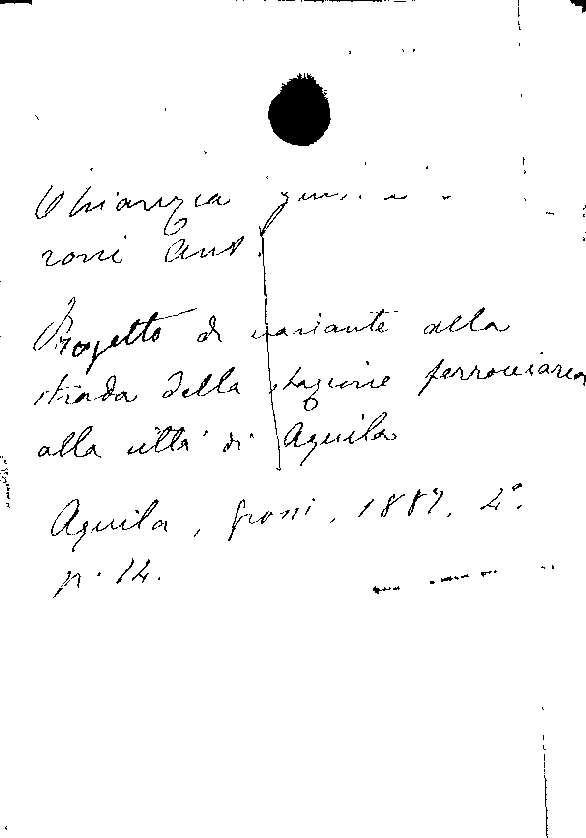 Chiarizia
roni Ant.
Progetto di variante alla
strada della stazione ferroviaria
alla città di Aquila
Aquila, Grossi, 1887. 4°.
p. 14.